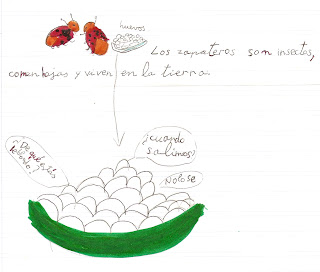 huevos
Los zapateros son insectos,
comen hojas y viven en la tierra.
¿cuando
salimos?
No lo se